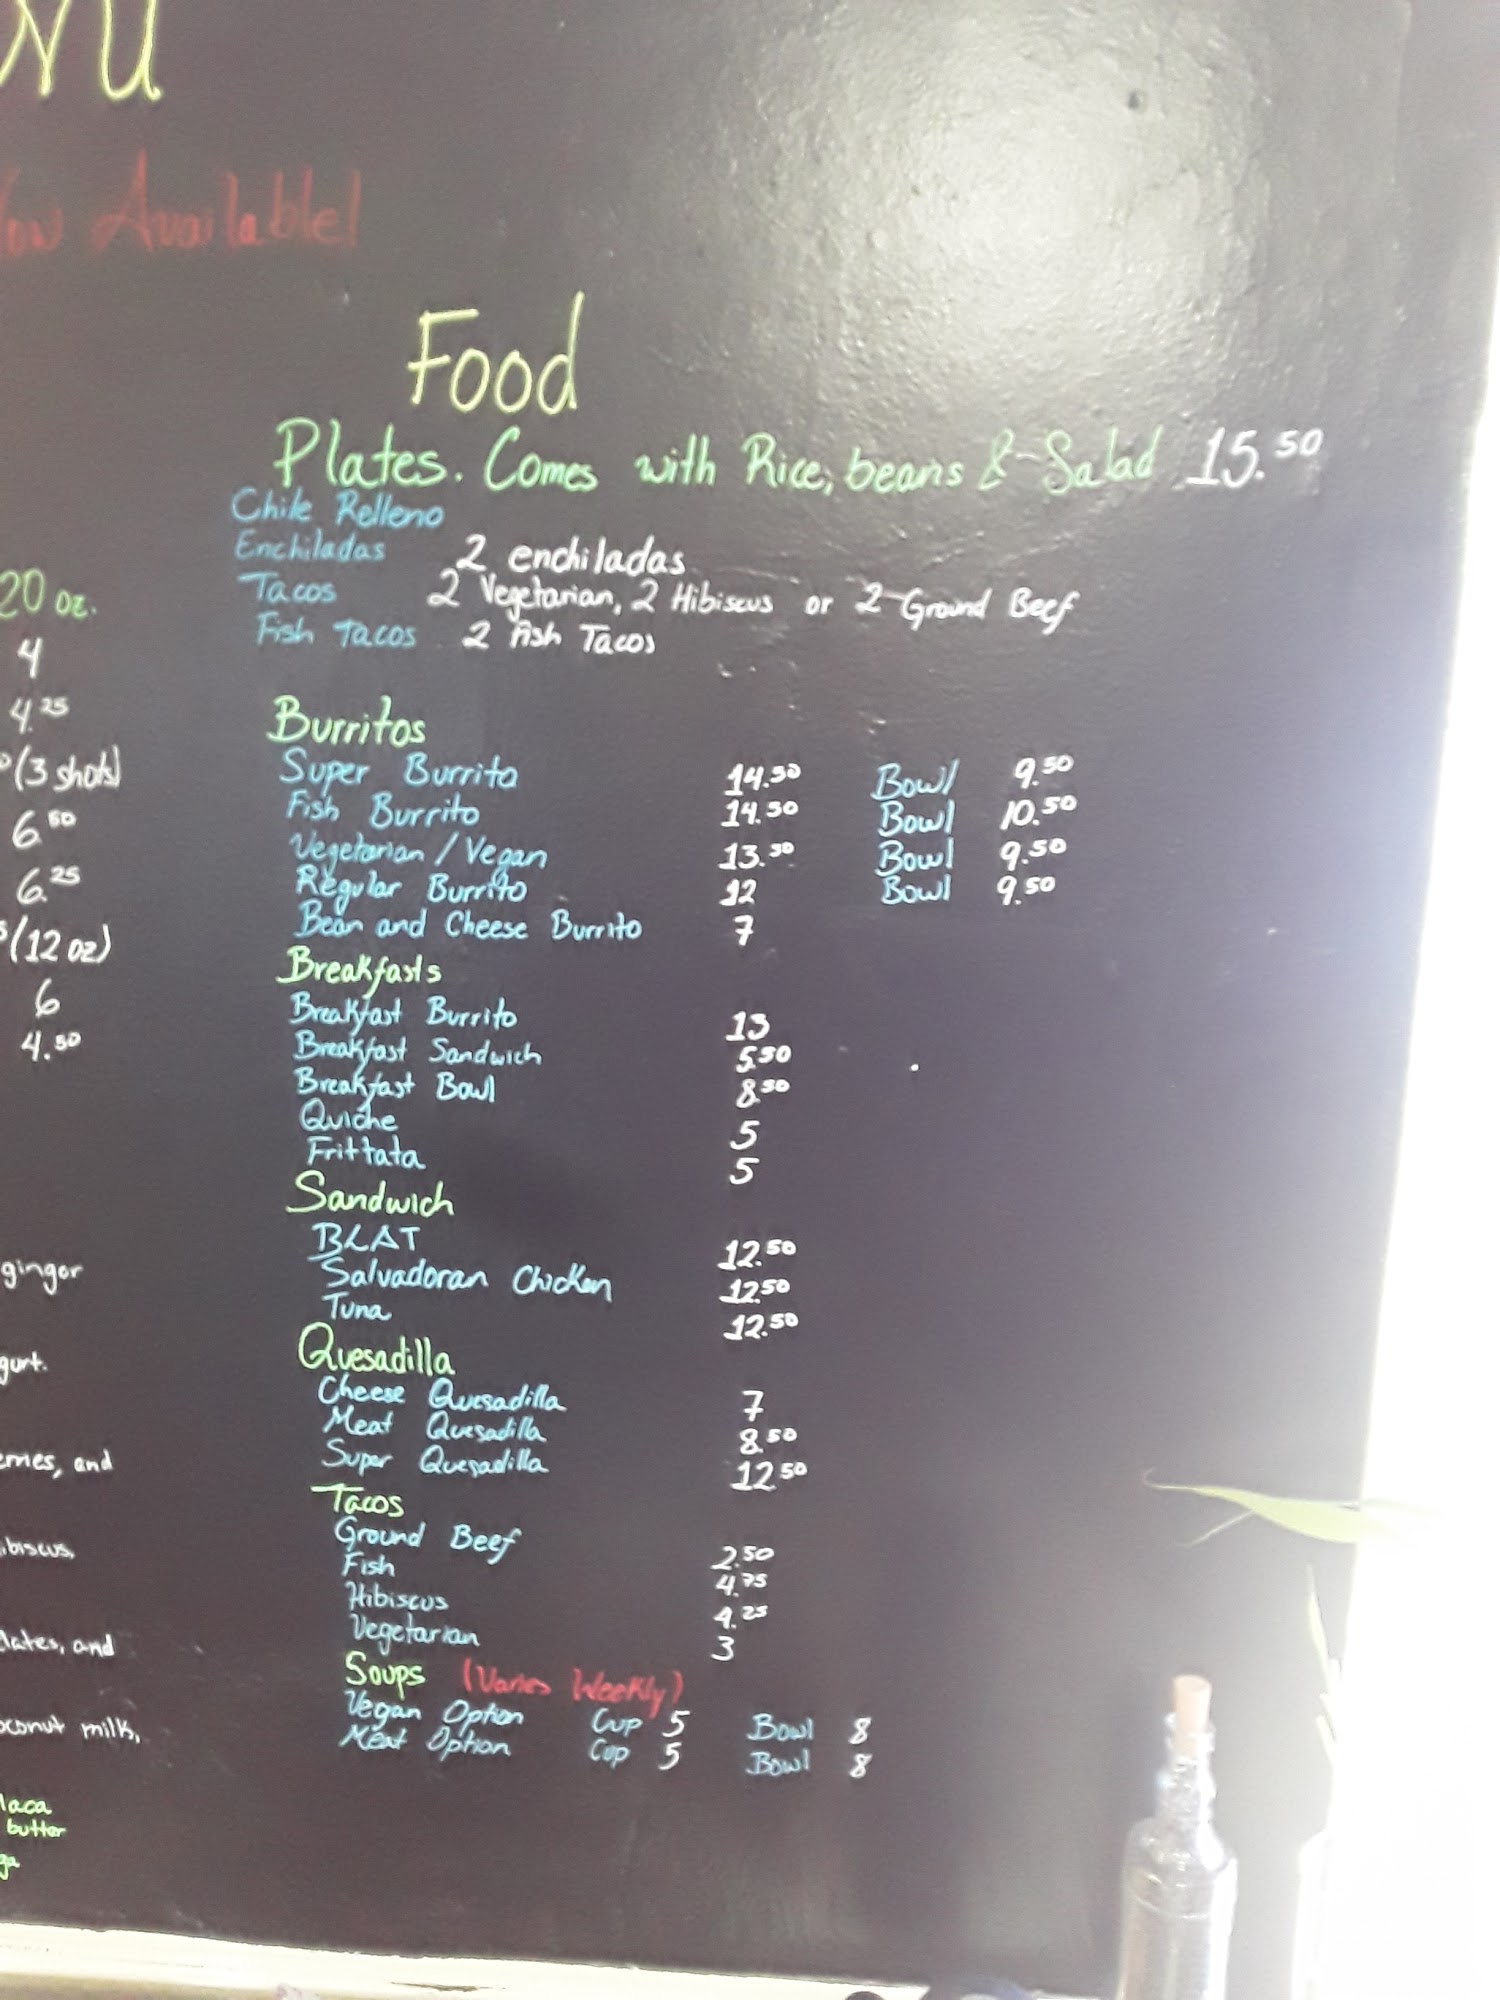 NU
Now Available!
20 oz.
4
4.25
(3 shots)
6.50
6.25
(12 oz)
6
4.50
ginger
and
and
milk,
butter
Food
Plates. Comes with Rice, beans & Salad 15.50
Chile Relleno
Enchiladas 2 enchiladas
Tacos 2 Vegetarian, 2 Hibiscus or 2 Ground Beef
Fish Tacos 2 Fish Tacos
Burritos
Super Burrito 14.50 Bowl 9.50
Fish Burrito 14.50 Bowl 10.50
Vegetarian / Vegan 13.50 Bowl 9.50
Regular Burrito 12 Bowl 9.50
Bean and Cheese Burrito 7
Breakfasts
Breakfast Burrito 13
Breakfast Sandwich 5.50
Breakfast Bowl 8.50
Quiche 5
Frittata 5
Sandwich
BLAT 12.50
Salvadoran Chicken 12.50
Tuna 12.50
Quesadilla
Cheese Quesadilla 7
Meat Quesadilla 8.50
Super Quesadilla 12.50
Tacos
Ground Beef 2.50
Fish 4.75
Hibiscus 4.25
Vegetarian 3
Soups (Varies Weekly)
Vegan Option Cup 5 Bowl 8
Meat Option Cup 5 Bowl 8